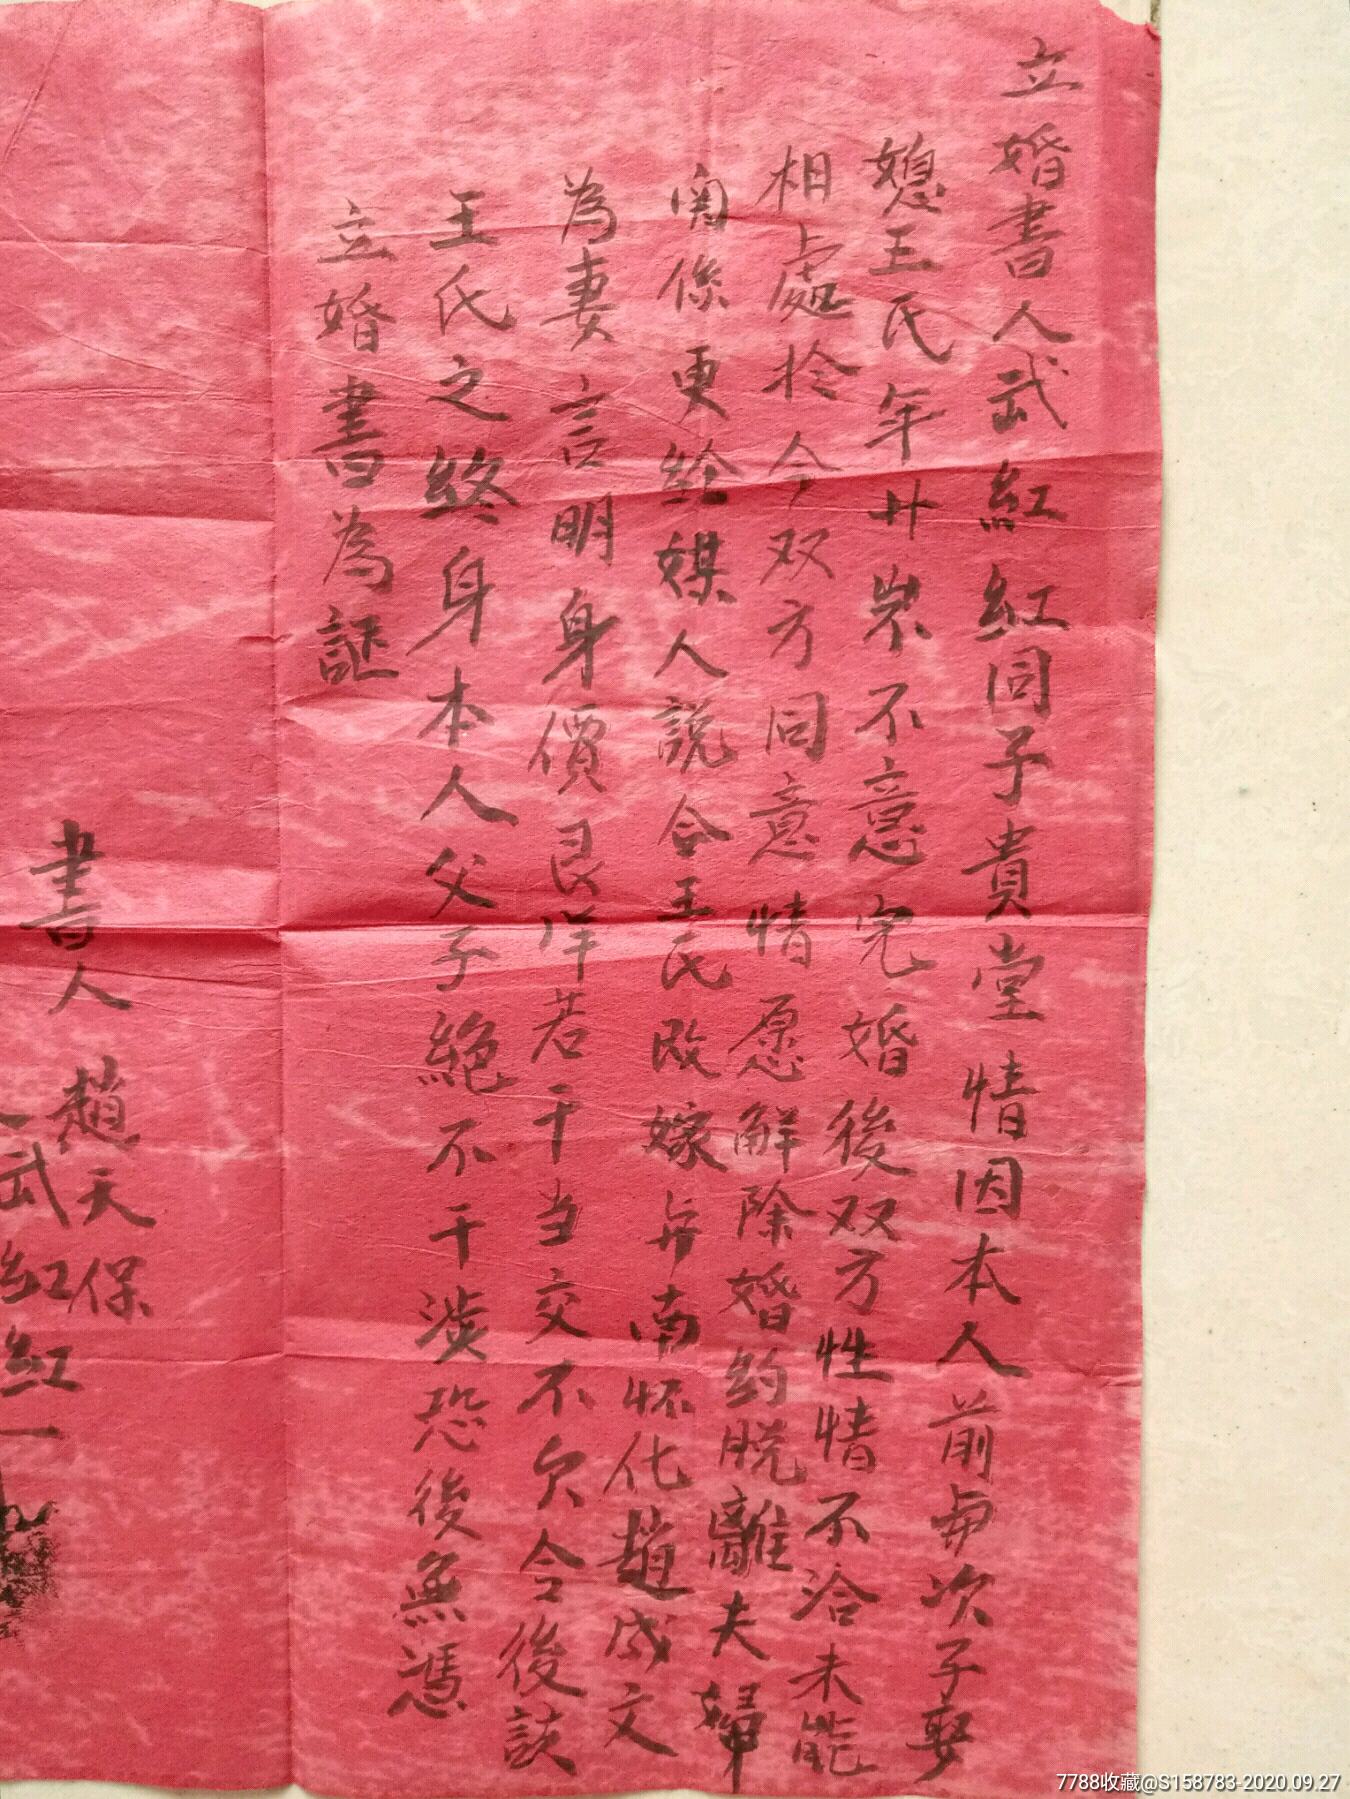 立婚書人武紅紅同子貴堂情因本人前与次子娶
媳王氏年廿岁不意完婚後双方性情不洽未能
相處於今双方同意情愿解除婚約脱離夫婦
関係更経媒人説合王氏改嫁与南怀化趙成文
為妻言明身價艮洋若干当交不欠令後該
王氏之終身本人父子絶不干涉恐後無憑
立婚書為証
書人 趙天保
武紅紅
7788收藏@S158783-2020.09.27